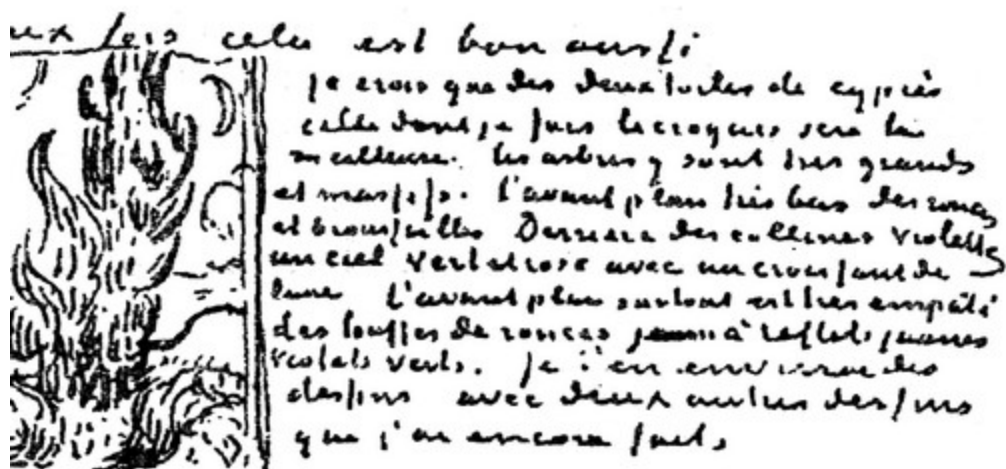 eux fois cela est bon aussi
je crois que des deux toiles de cyprès
celle dont je fais le croquis sera la
meilleure. les arbres y sont très grands
et massifs. l'avant plan très bas des ronces
et broussailles Derrière des collines violettes
un ciel vert et rose avec un croissant de
lune L'avant plan surtout est très empâté
des touffes de ronces à reflets jaunes
violets verts. je t'en enverrai des
dessins avec deux autres dessins
que j'ai encore faits